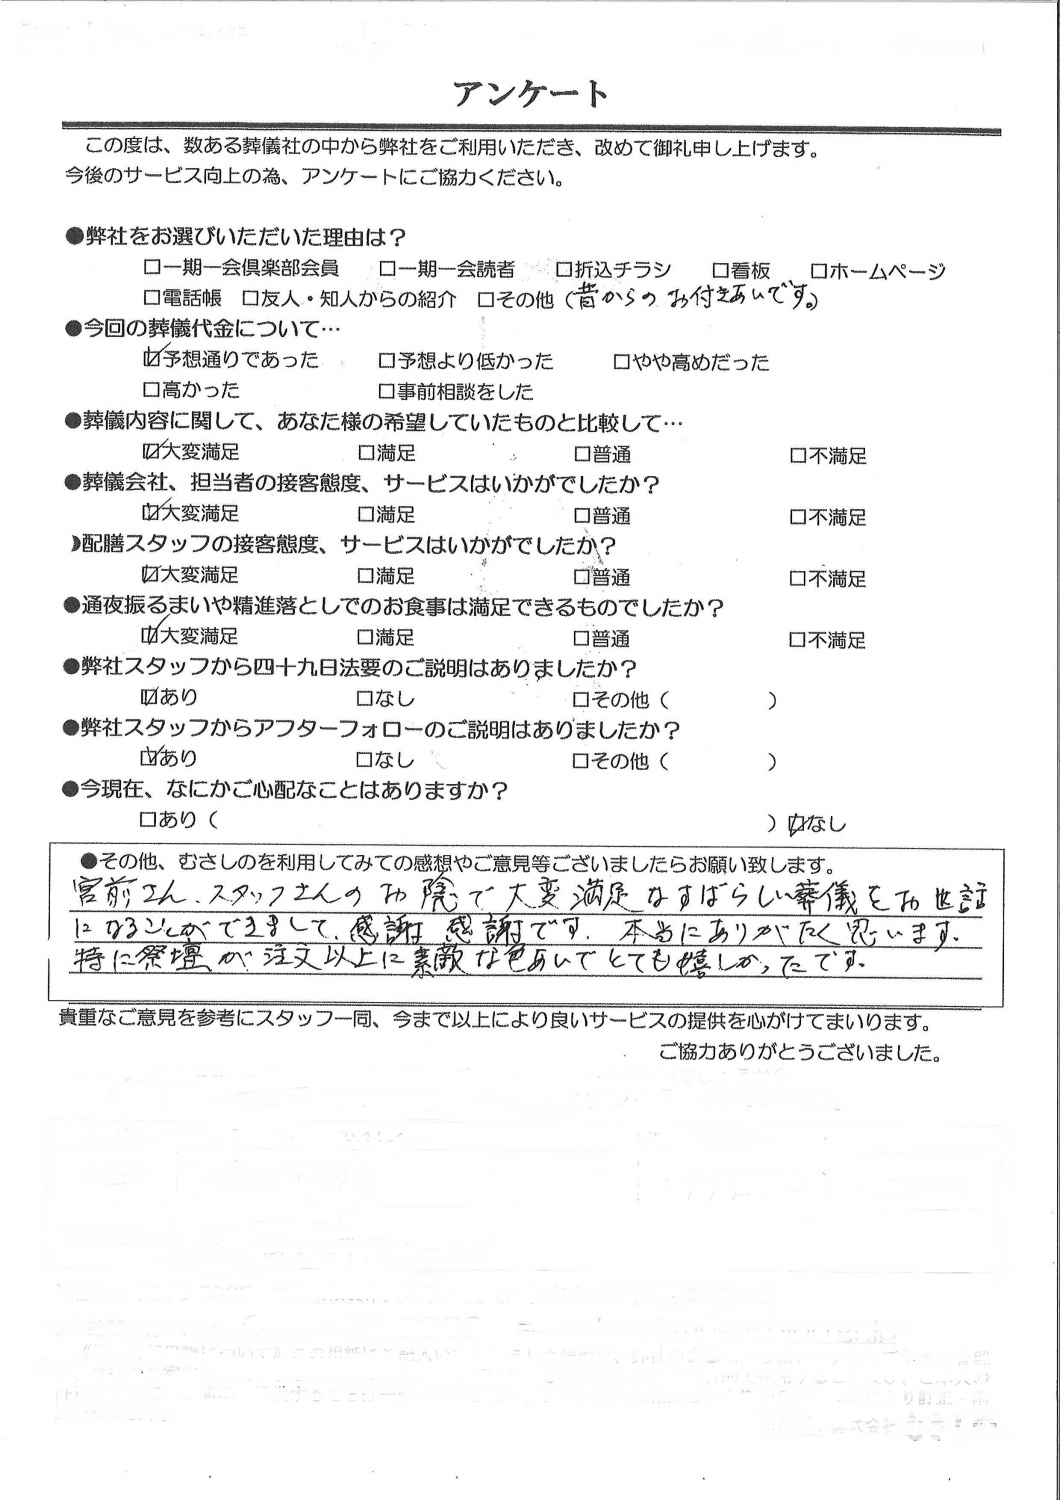 アンケート
この度は、数ある葬儀社の中から弊社をご利用いただき、改めて御礼申し上げます。
今後のサービス向上の為、アンケートにご協力ください。
●弊社をお選びいただいた理由は？
□一期一会倶楽部会員 □一期一会読者 □折込チラシ □看板 □ホームページ
□電話帳 □友人・知人からの紹介 □その他（昔からのお付きあいです。）
●今回の葬儀代金について…
☑予想通りであった □予想より低かった □やや高めだった
□高かった □事前相談をした
●葬儀内容に関して、あなた様の希望していたものと比較して…
☑大変満足 □満足 □普通 □不満足
●葬儀会社、担当者の接客態度、サービスはいかがでしたか？
☑大変満足 □満足 □普通 □不満足
●配膳スタッフの接客態度、サービスはいかがでしたか？
☑大変満足 □満足 □普通 □不満足
●通夜振るまいや精進落としでのお食事は満足できるものでしたか？
☑大変満足 □満足 □普通 □不満足
●弊社スタッフから四十九日法要のご説明はありましたか？
☑あり □なし □その他（ ）
●弊社スタッフからアフターフォローのご説明はありましたか？
☑あり □なし □その他（ ）
●今現在、なにかご心配なことはありますか？
□あり（ ）☑なし
●その他、むさしのを利用してみての感想やご意見等ございましたらお願い致します。
宮前さん、スタッフさんのお陰で大変満足なすばらしい葬儀をお世話
になることができまして、感謝感謝です。本当にありがたく思います。
特に祭壇が注文以上に素敵な色あいでとても嬉しかったです。
貴重なご意見を参考にスタッフ一同、今まで以上により良いサービスの提供を心がけてまいります。
ご協力ありがとうございました。